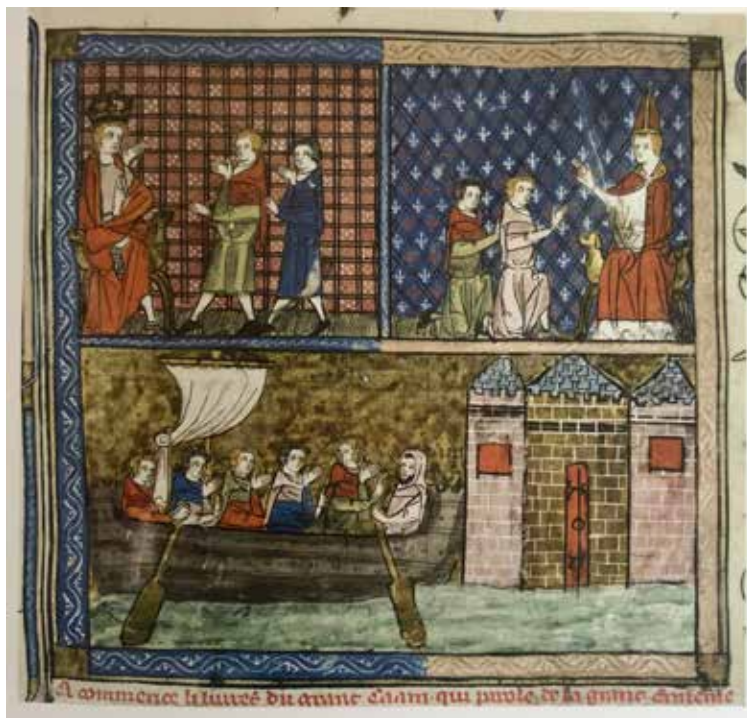 Ci commence li liures du graunt Caam qui parole de la graunt Ermenie